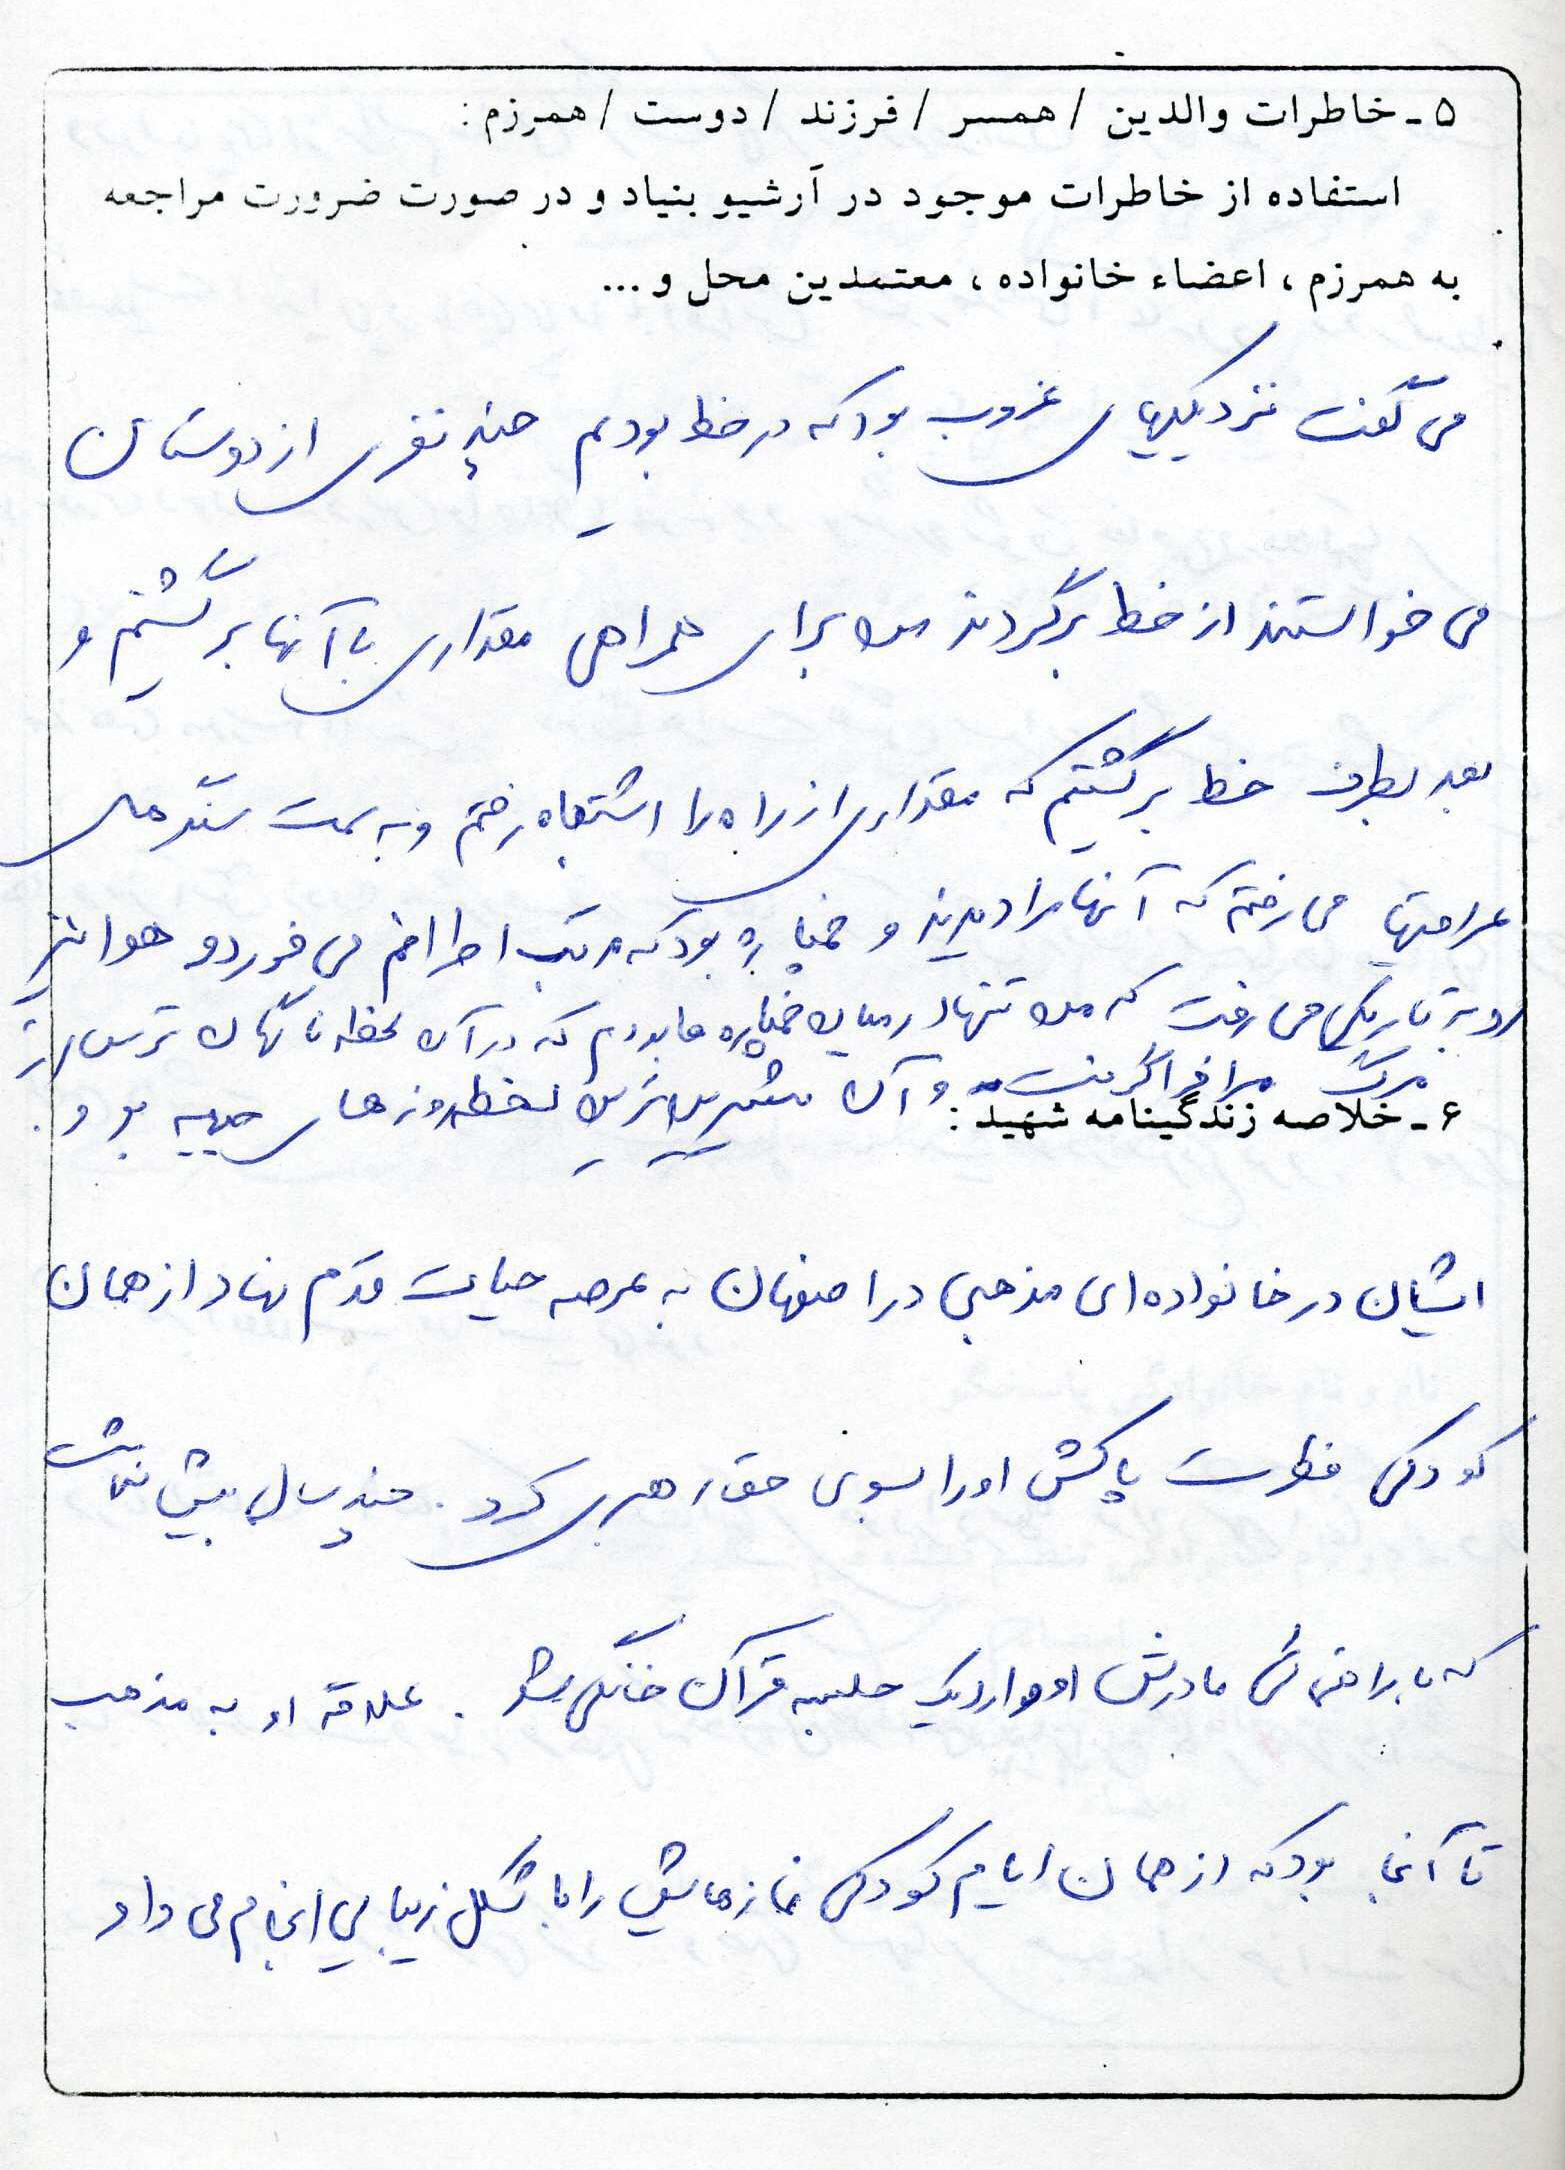 ۵ - خاطرات والدین / همسر / فرزند / دوست / همرزم :
استفاده از خاطرات موجود در آرشیو بنیاد و در صورت ضرورت مراجعه
به همرزم ، اعضاء خانواده ، معتمدین محل و ...
می گفت نزدیکیهای غروب بود که در خط بودیم چند نفری از دوستان
می خواستند از خط برگردند من برای همراهی مقداری با آنها برگشتم و
بعد بطرف خط برگشتم که مقداری از راه را اشتباه رفتم و به سمت سنگرهای
عراقیها می رفتم که آنها مرا دیدند و خمپاره بود که مرتب اطرافم می خورد و هوا نیز
رو به تاریکی می رفت که من تنها در میان خمپاره ها بودم که در آن لحظه ناگهان ترس از
مرگ مرا فرا گرفت و آن شیرین ترین لحظه روزهای جبهه بود .
۶ - خلاصه زندگینامه شهید :
ایشان در خانواده ای مذهبی در اصفهان به عرصه حیات قدم نهاد از همان
کودکی فطرت پاکش او را بسوی حق رهبری کرد . چند سال بیش نداشت
که با راهنمائی مادرش او وارد یک جلسه قرآن خانگی شد . علاقه او به مذهب
تا آنجا بود که از همان ایام کودکی نمازهایش را با شکل زیبایی انجام می داد